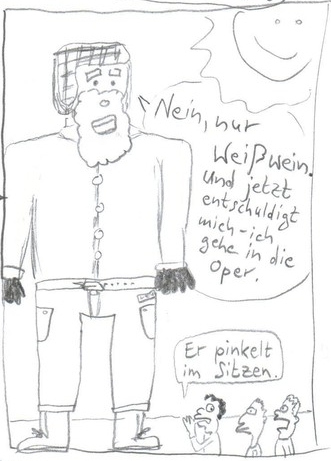 Nein, nur
Weißwein.
Und jetzt
entschuldigt
mich - ich
gehe in die
Oper.
Er pinkelt
im Sitzen.